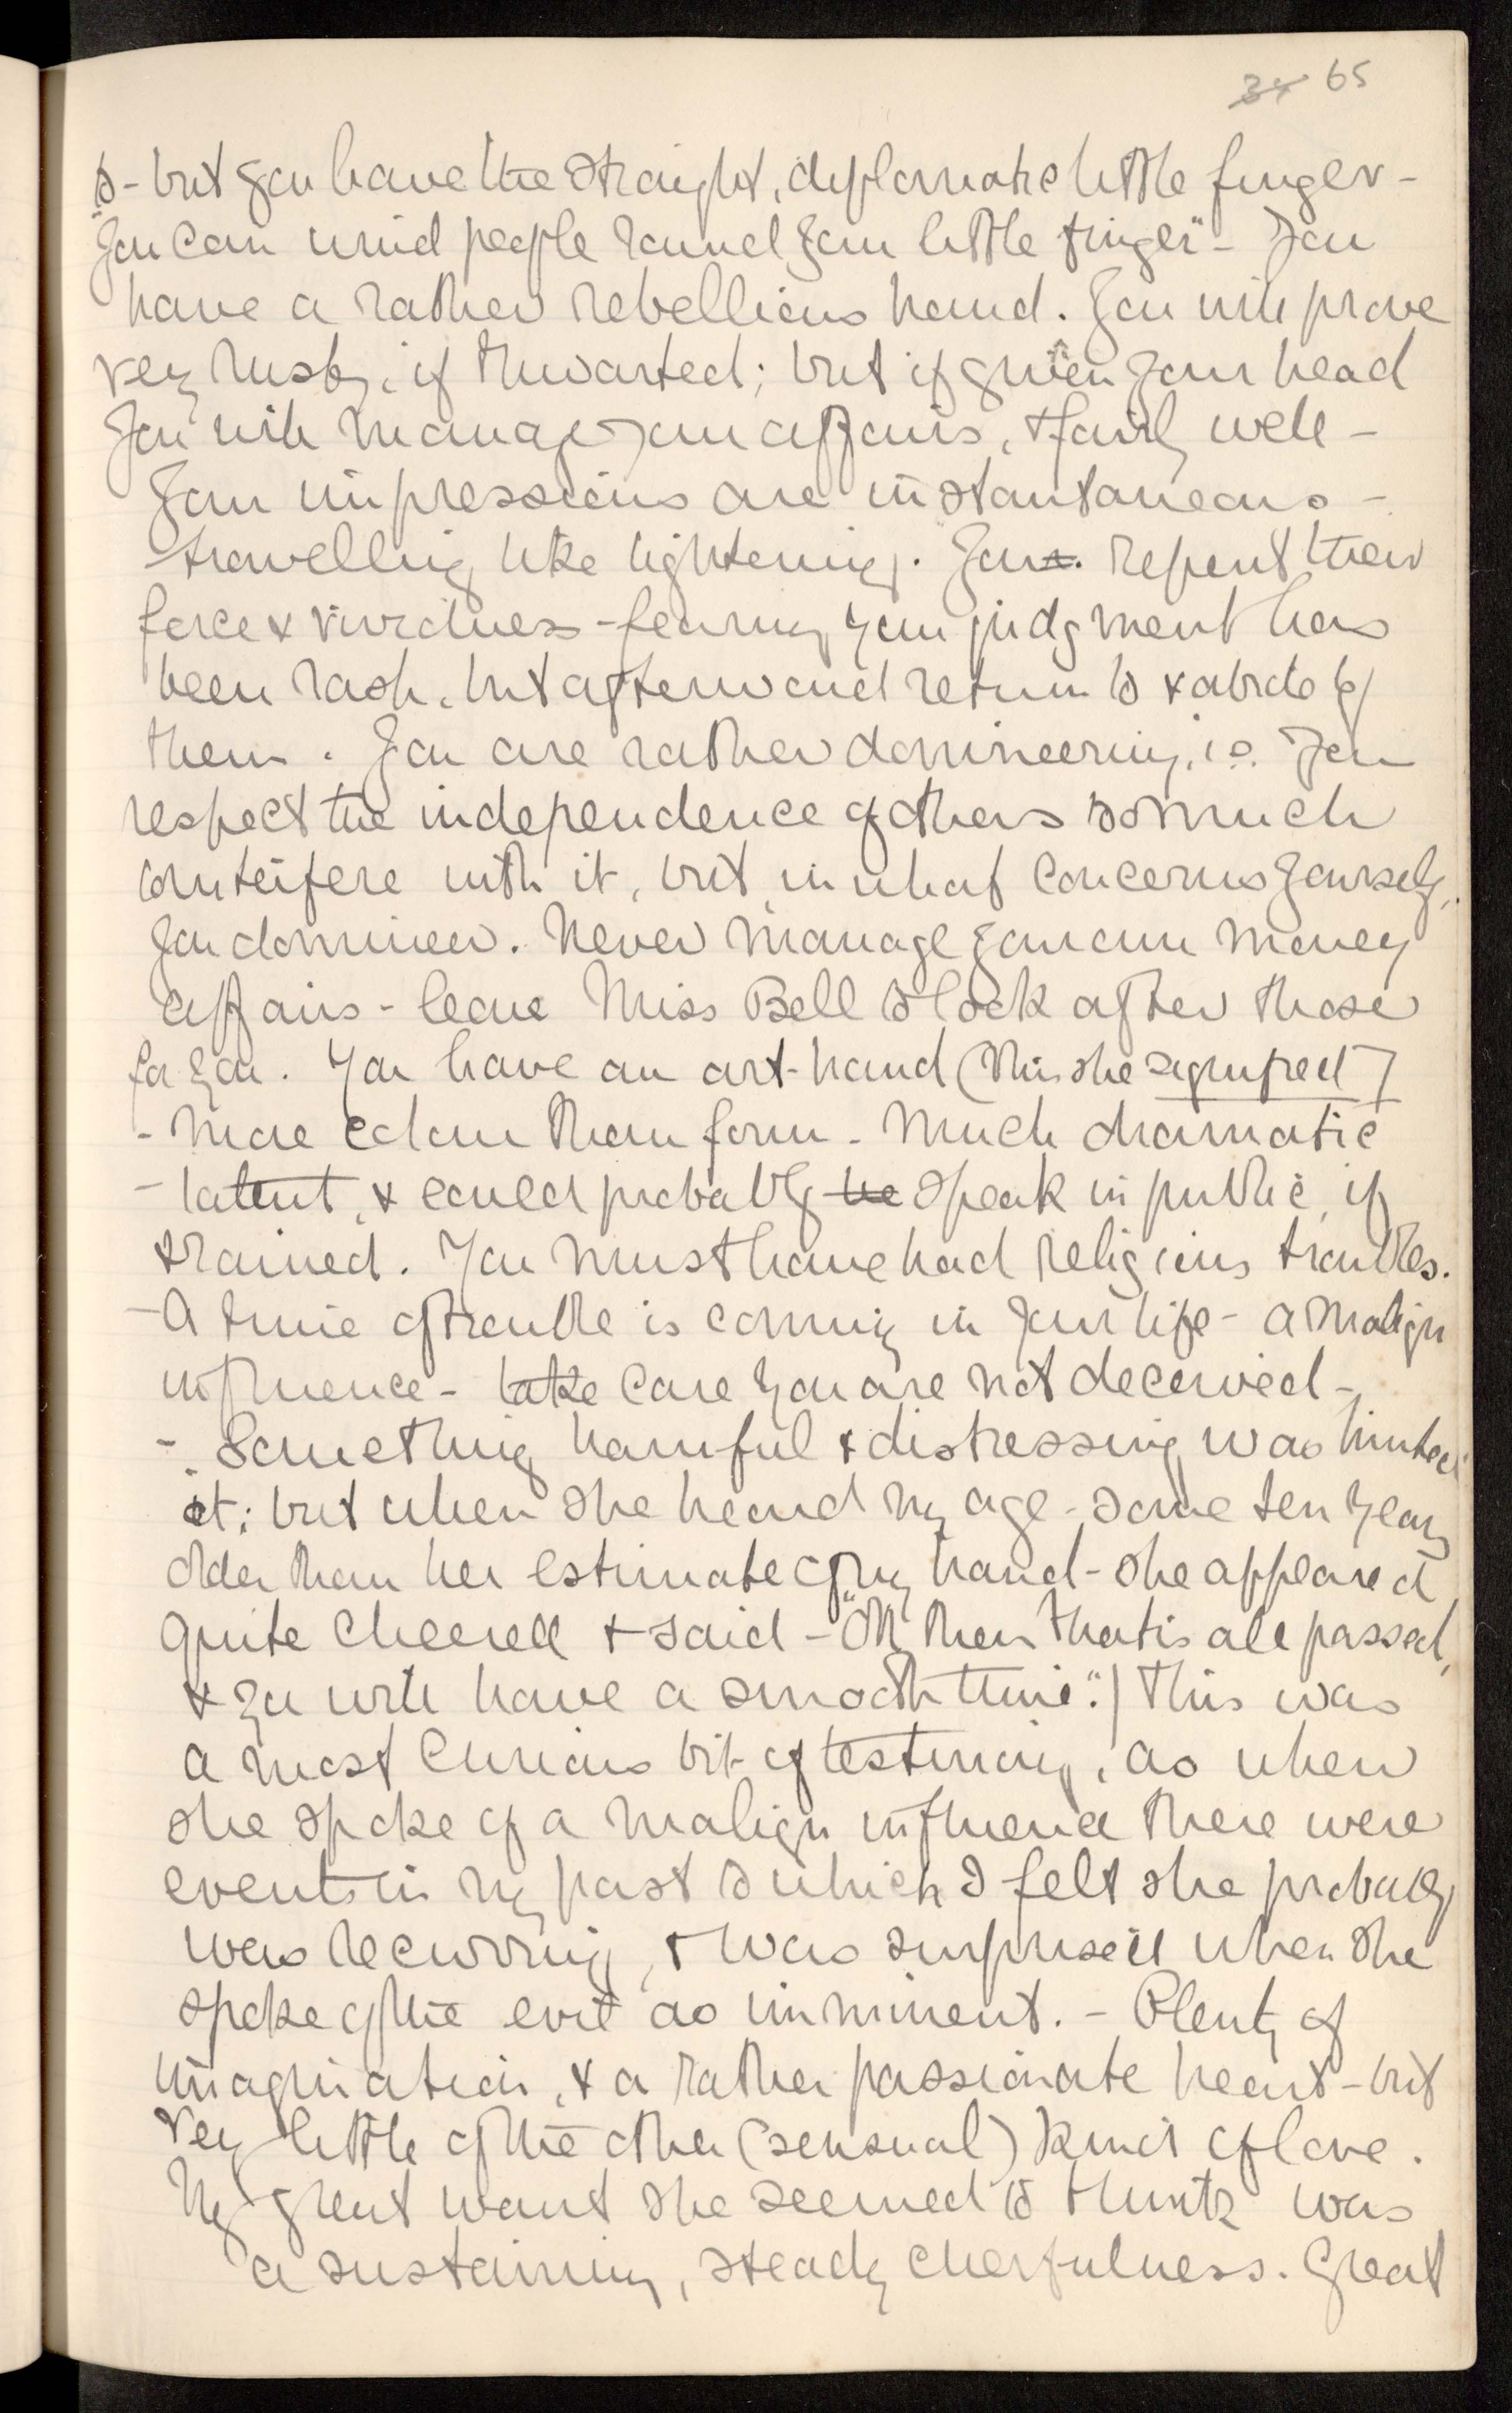 34 65
to - but you have the straight, diplomatic little finger -
"You can wind people round your little finger" - You
have a rather rebellious hand. You will prove
very  if thwarted; but if given your head
you will manage your affairs, & fairly well -
Your impressions are instantaneous -
travelling like lightening. You repent their
force & vividness - fearing your judgment has
been rash, but afterward return to & abide by
them. You are rather domineering, i.e. you
respect the independence of others too much
to interfere with it, but in what concerns yourself,
you domineer. Never manage your own money
affairs - leave Miss Bell to look after those
for you. You have an art-hand (this she signified)
- more colour than form - Much dramatic
- latent, & could probably be speak in public, if
trained. You must have had religious troubles.
- A time of trouble is coming in your life - a malign
influence - take care you are not deceived -
- Something harmful & distressing was hinted
at; but when she heard my age - some ten years
older than her estimate of my hand - she appeared
quite cheered & said - "Oh then that is all passed,
& you will have a smooth time." / This was
a most curious bit of testimony, as when
she spoke of a malign influence there were
events in my past to which I felt she probably
was recurring, & was surprised when she
spoke of the evil as imminent. - Plenty of
imagination, & a rather passionate heart - but
very little of the other (sensual) kind of love.
My great want she seemed to think was
a sustaining, steady cheerfulness. Great